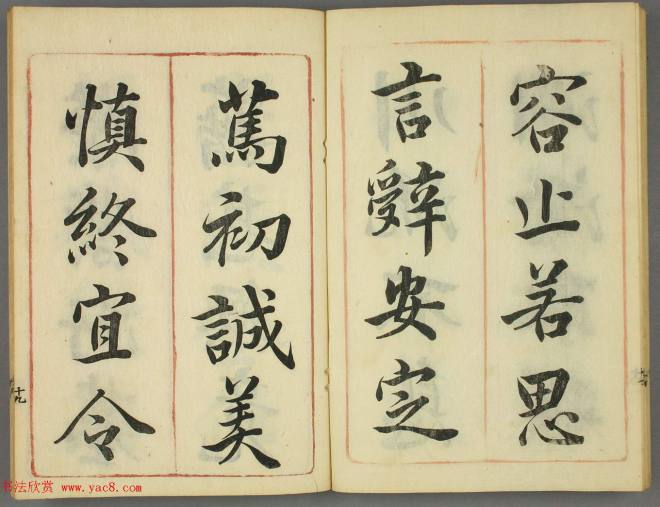 容止若思
言辭安定
篤初誠美
慎終宜令
十九
书法欣赏 www.yac8.com